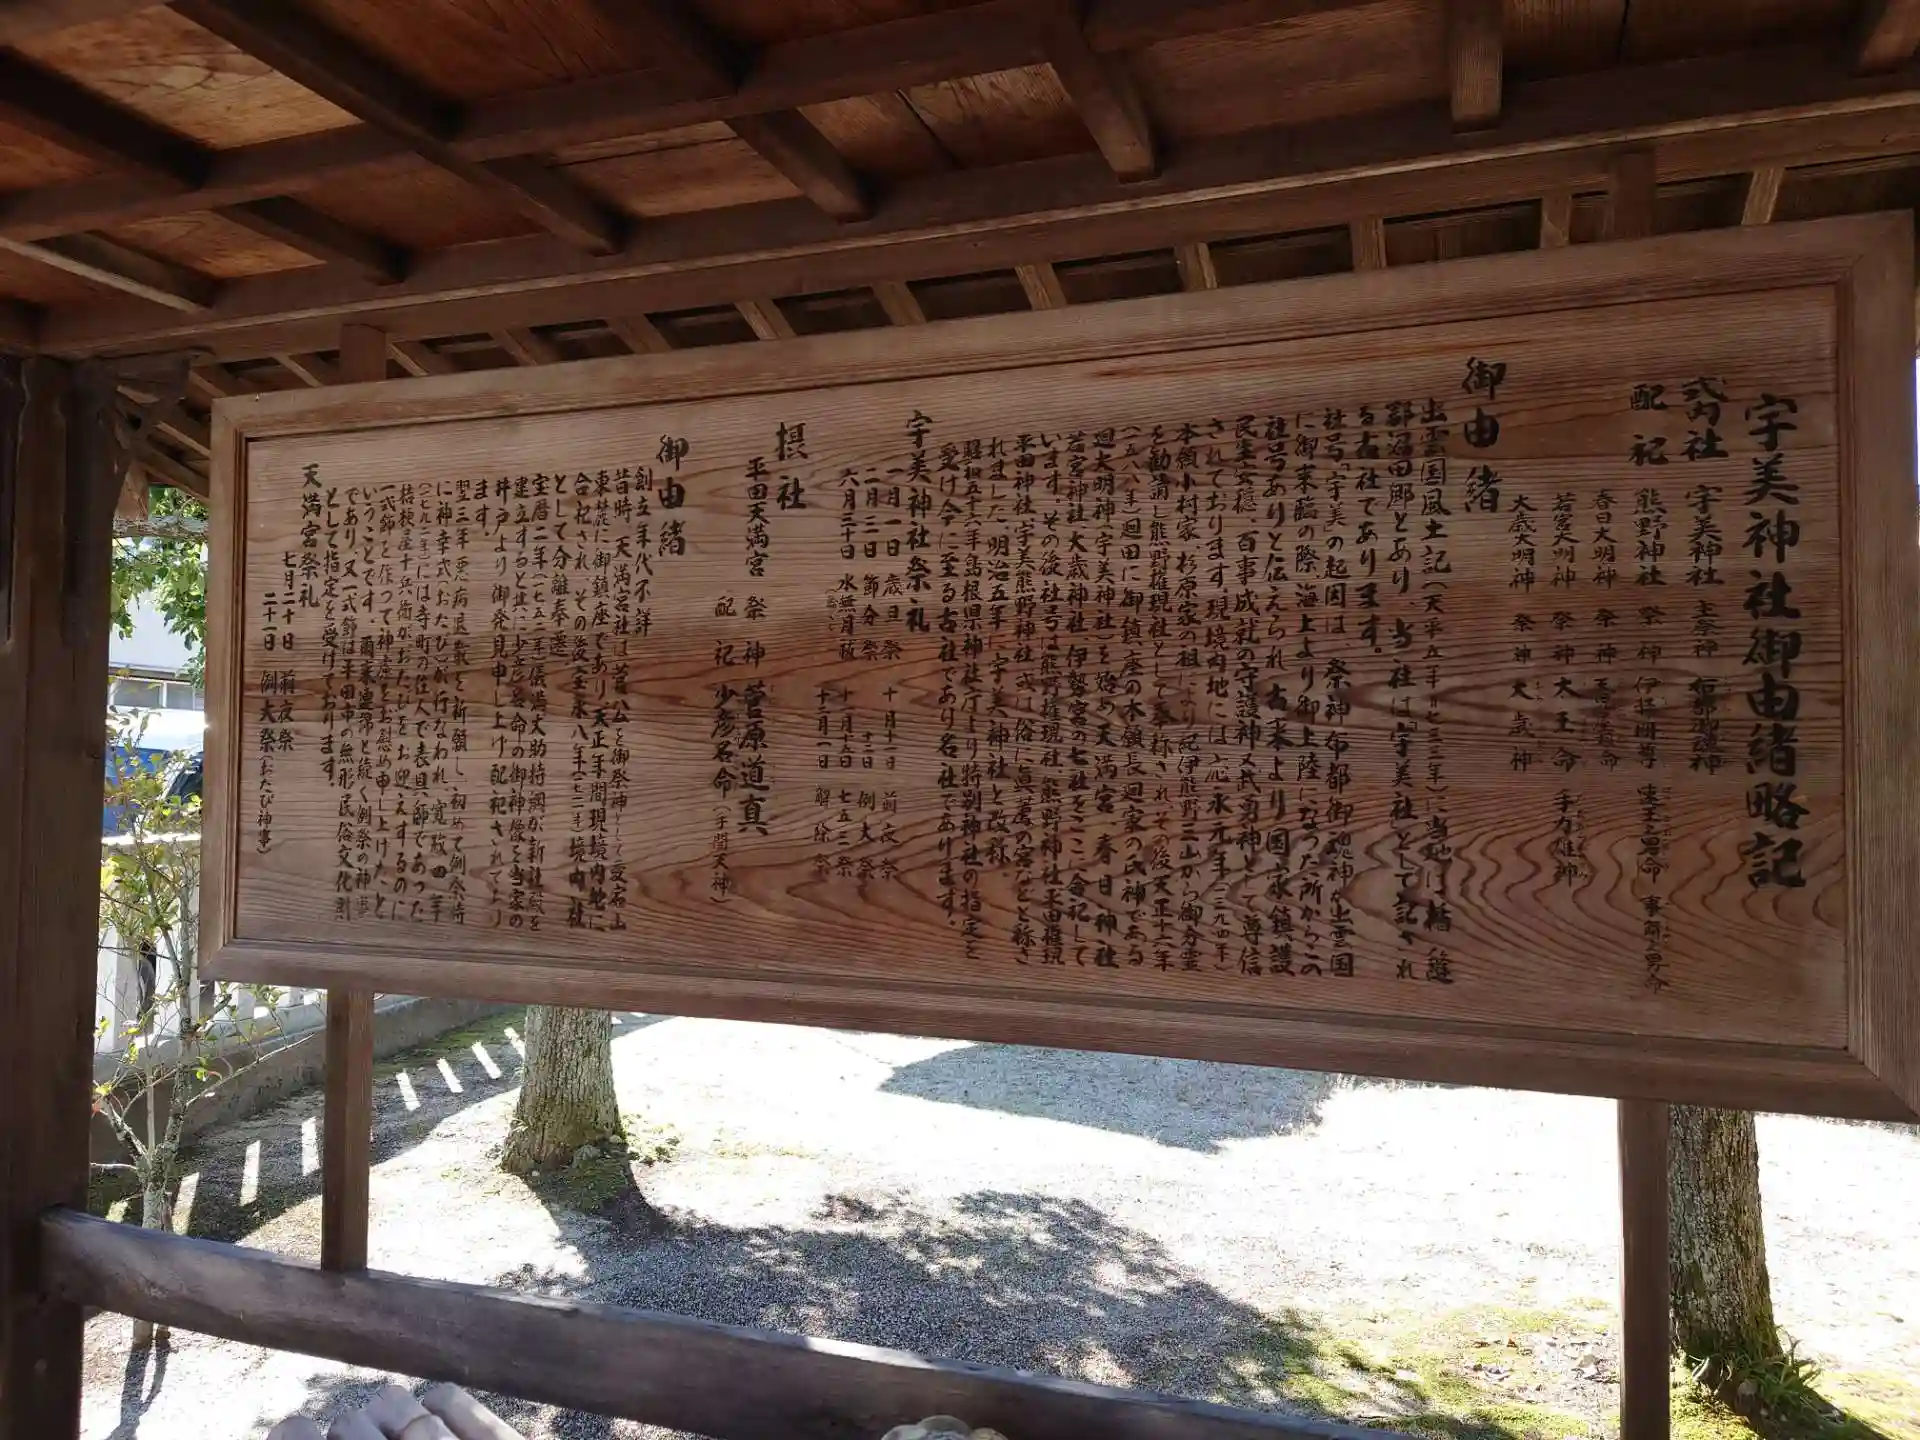 宇美神社御由緒略記
式内社 宇美神社 主祭神 布都御魂神
配祀 熊野神社 祭神 伊弉冊尊 速玉之男命 事解之男命
春日大明神 祭神 天児屋根命
若宮大明神 祭神 大玉命 手力雄神
大歳大明神 祭神 大歳神
御由緒
出雲国風土記(天平五年=七三三年)に当地は楯縫
郡沼田郷とあり、当社は「宇美社」として記され
る古社であります。
社号「宇美」の起因は、祭神布都御魂神が出雲国
に御来臨の際、海上より御上陸になった所からこの
社号ありと伝えられ、古来より国家鎮護
民生安穏、百事成就の守護神又武勇神として尊信
されております。現境内地には応永元年(一三九四年)
本領小村家、杉原家の祖により紀伊熊野三山から御分霊
を勧請し熊野権現社として奉称され、その後天正十六年
(一五八八年)廻田に御鎮座の本領長廻家の氏神である
廻大明神(宇美神社)を始め天満宮 春日神社
若宮神社 大歳神社 伊勢宮の七社をここに合祀して
います。その後社号は熊野権現社、熊野神社、平田権現
平田神社、宇美熊野神社、或は俗に眞菅の宮などと称さ
れました。明治五年に宇美神社と改称。
昭和五十六年島根県神社庁より特別神社の指定を
受け今に至る古社であり名社であります。
宇美神社祭礼
一月一日 歳旦祭 十月十一日 前夜祭
二月三日 節分祭 十二日 例大祭
六月三十日 水無月祓 十一月十五日 七五三祭
十二月一日 解除祭
摂社
平田天満宮 祭神 菅原道真
配祀 少彦名命(手間天神)
御由緒
創立年代不詳
昔時、天満宮社は菅公を御祭神として愛宕山
東麓に御鎮座であり天正年間現境内地に
合祀され、その後宝永八年(一七一一年)境内社
として分離奉遷
宝暦二年(一七五二年)儀満丈助持綱が新社殿を
建立すると共に少彦名命の御神像を当家の
井戸より御発見申し上げ配祀されており
ます。
翌三年悪病退散を祈願し、初めて例祭時
に神幸式(おたび)が行なわれ、寛政四年
(一七九二年)には寺町の住人で表具師であった
桔梗屋十兵衛が、おたびをお迎えするのに
一式飾を作って神慮をお慰め申し上げたと
いうことです。爾来連綿と続く例祭の神事
であり、又一式飾は平田市の無形民俗文化財
として指定を受けております。
天満宮祭礼
七月二十日 前夜祭
二十一日 例大祭(おたび神事)